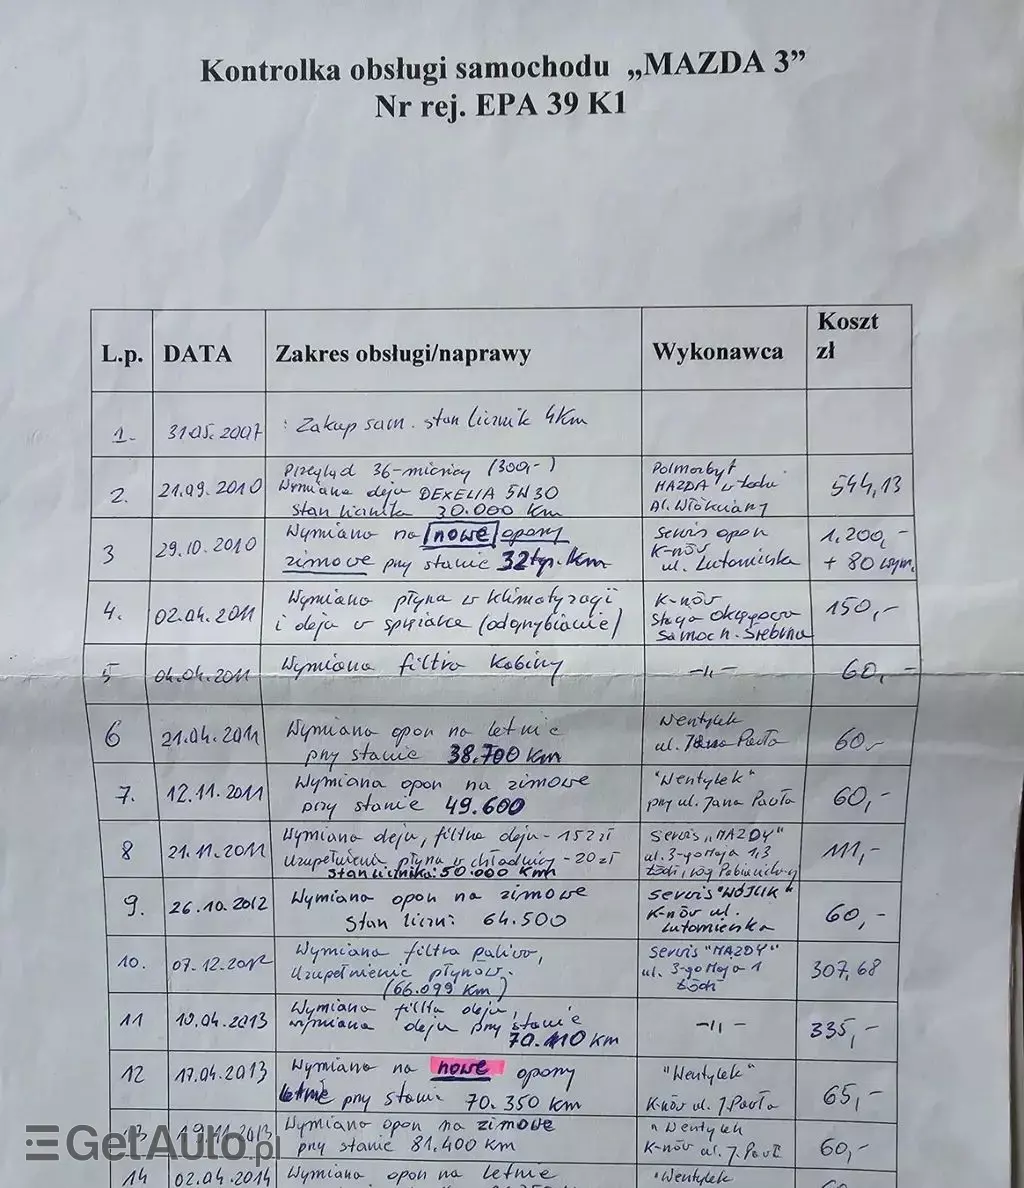 Kontrolka obsługi samochodu „MAZDA 3”
Nr rej. EPA 39 K1
L.p. DATA Zakres obsługi/naprawy Wykonawca Koszt zł
1. 31.05.2007 Zakup sam. stan licznik 4Km
2. 21.09.2010 Przegląd 36-miesięcy (300,-) Polmozbyt
Wymiana oleju DEXELIA 5W30 MAZDA w Łodzi 544,13
stan licznika 30.000 km Al. Włókniarzy
3 29.10.2010 Wymiana na nowe opony Serwis opon 1.200,-
zimowe przy stanie 32tyś.km K-nów ul. Lutomierska + 80 wym.
4. 02.04.2011 Wymiana płynu w klimatyzacji K-nów 150,-
i oleju w sprężarce (odgrzybianie) Stacja Okręgowa
Samoch. Srebrna
5 04.04.2011 Wymiana filtra kabiny -11- 60,-
6 21.04.2011 Wymiana opon na letnie Wentylek 60,-
przy stanie 38.700 km ul. Jana Pawła
7. 12.11.2011 Wymiana opon na zimowe "Wentylek" 60,-
przy stanie 49.600 przy ul. Jana Pawła
8 21.11.2011 Wymiana oleju, filtra oleju - 152 zł Serwis „MAZDY" 111,-
Uzupełnienie płynu w chłodnicy - 20 zł ul. 3-go Maja 1,3
stan licznika: 50.000 Km Łódź, róg Pabianickiej
9. 26.10.2012 Wymiana opon na zimowe Serwis "WÓJCIK" 60,-
Stan liczn: 64.500 K-nów ul. Lutomierska
10. 07.12.2012 Wymiana filtra paliwa, Serwis "MAZDY" 307,68
Uzupełnienie płynów. ul. 3-go Maja 1
(66.099 Km) Łódź
11 10.04.2013 Wymiana filtra oleju, -11- 335,-
wymiana oleju przy stanie
70.110 Km
12 17.04.2013 Wymiana na nowe opony "Wentylek" 65,-
letnie przy stani 70.350 km K-nów ul. J. Pawła
13 19.11.2013 Wymiana opon na zimowe "Wentylek 60,-
przy stanie 81.400 km K-nów ul. J. Pawł
14 02.04.2014 Wymiana opon na letnie "Wentylek
GetAuto.pl